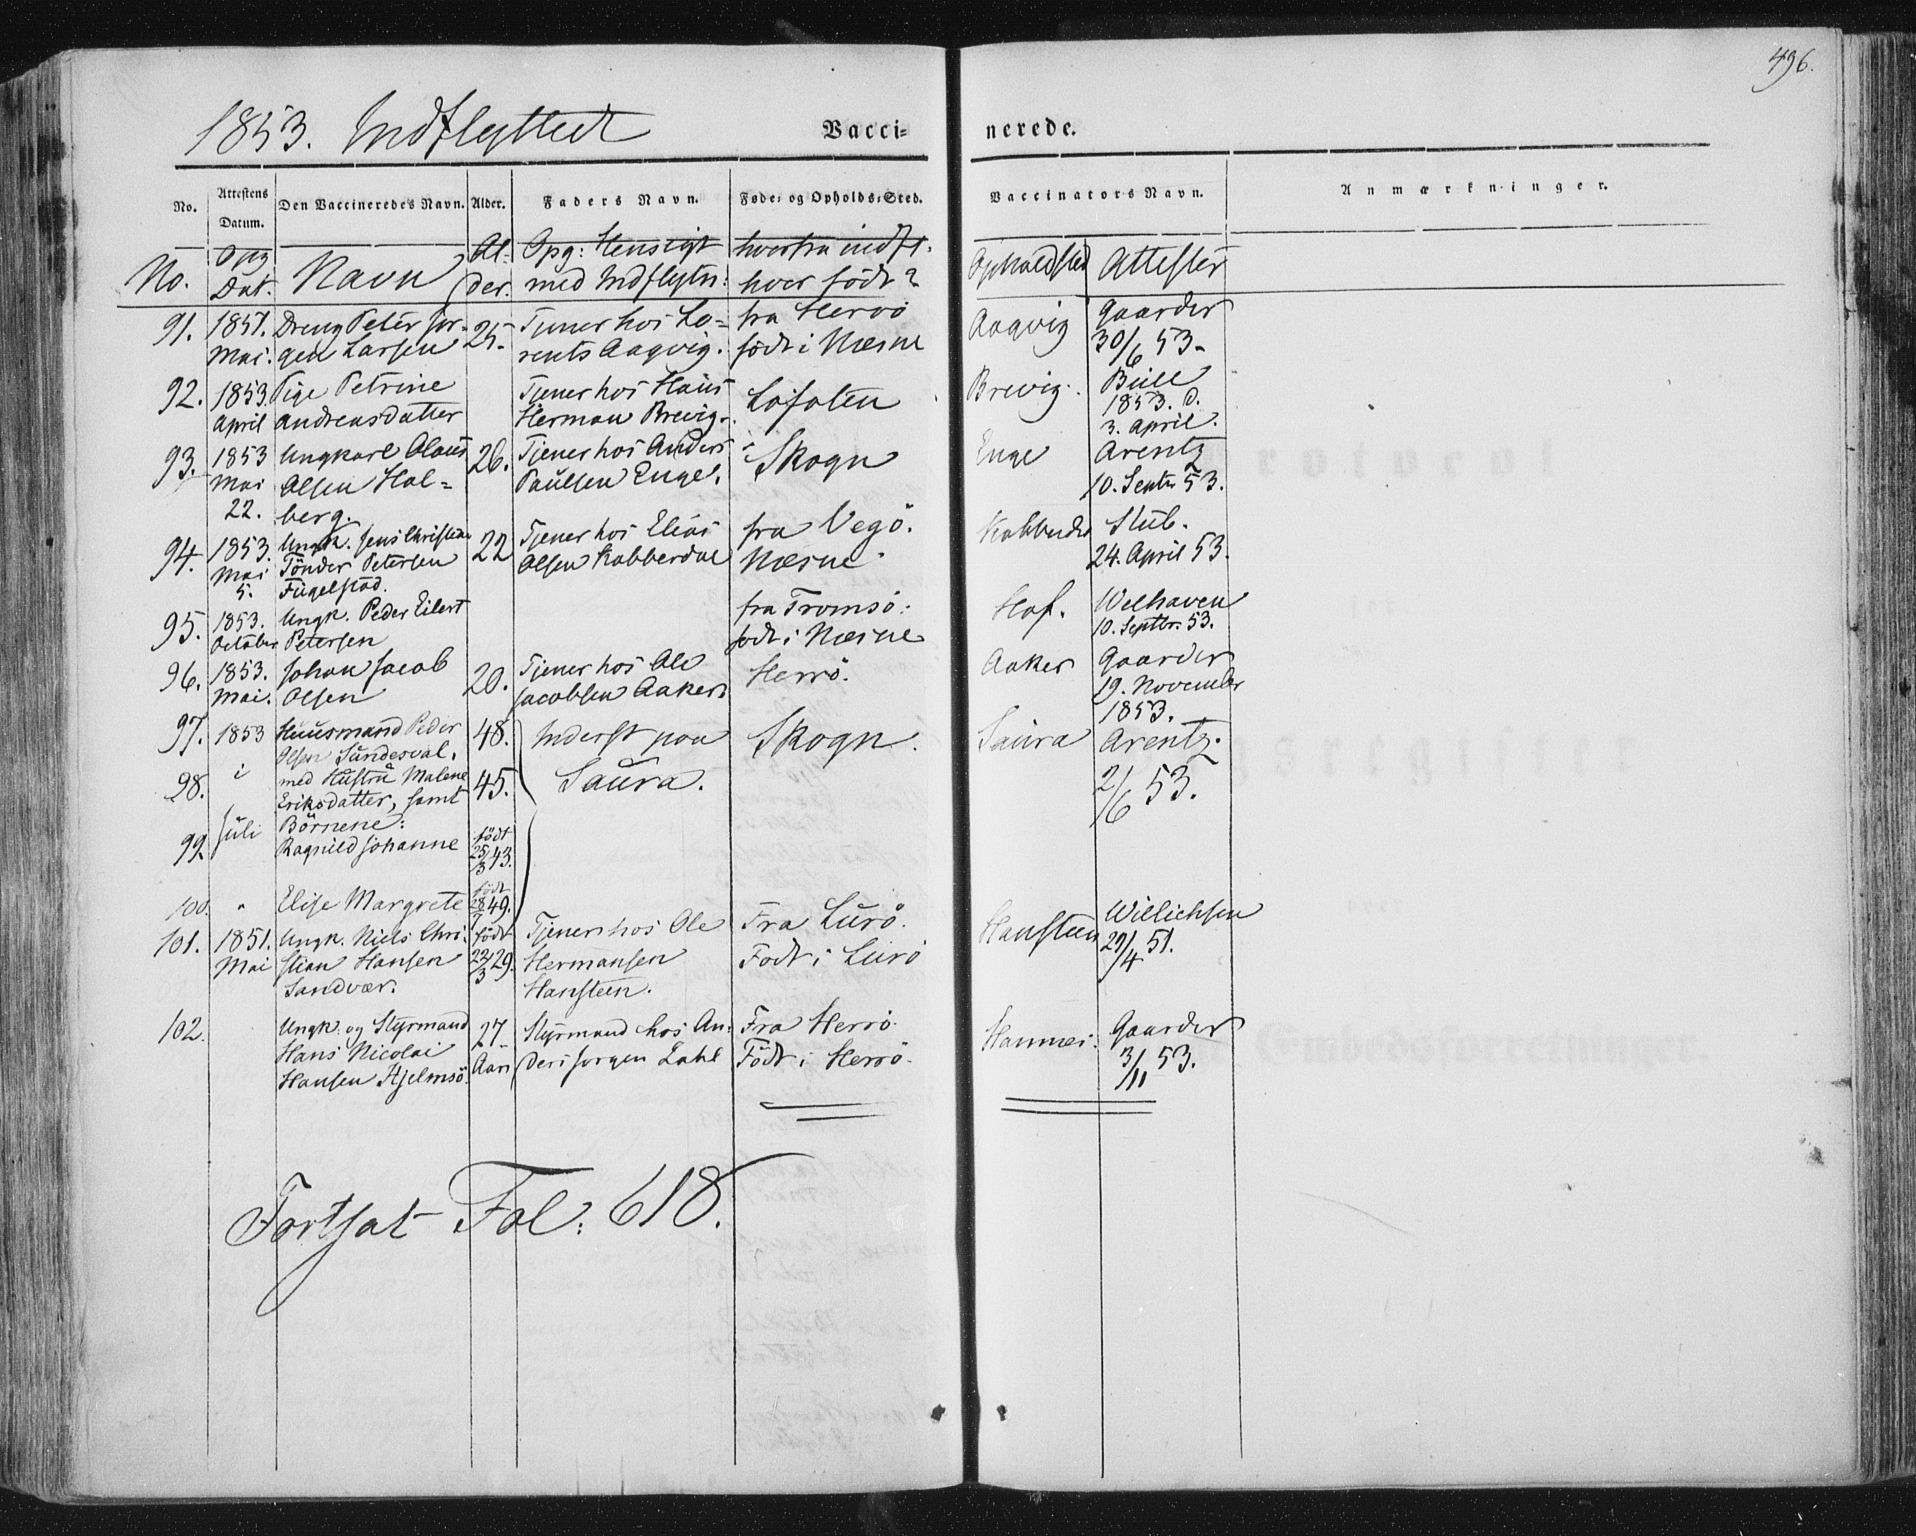 496.
1853. Indflyttede
Vacci=
nerede.
No.
Attestens Datum.
Den Vaccineredes Navn.
Alder.
Faders Navn.
Føde= og Opholds=Sted.
Vaccinators Navn.
Anmærkninger.
No.
Opg Dat.
Navn
Al= der.
Opg: Hensigt
med Indflytn:
hvorfra indfl.
hvor födt?
Opholdsted
Attester
91. 1851. Dreng Peter Jör= 25. Tjener hos Lo= fra Herrö Aagvig Gaarder
Mai. gen Larsen rents Aagvig. födt i Næsne 30/6 53.
92. 1853 Pige Petrine Tjener hos Hans Lofoten Brevig. Bull
April Andreasdatter Herman Brevig. 1853. d.
3. April.
93. 1853 Ungkarl Olaus 26. Tjener hos Anders Skogn Enge Arentz
Mai Olsen Hol= Paulsen Enge. 10. Septr 53.
22. berg.
94. 1853. Ungk. Jens Christian 22 Tjener hos Elias fra Vegö. Kobberdal Stub.
Mai Tönder Petersen Olsen Kobberdal Næsne 24. April 53.
5. Fügelstad.
95. 1853. Ungk. Peder Eilert fra Tromsö: Hof. Welhaven
October Petersen födt i Næsne 10. Septbr. 53.
96. 1853. Johan Jacob 20. Tjener hos Ole Herrö. Aaker Gaarder
Mai. Olsen Jacobsen Aaker 19. November
1853.
97. 1853 Huusmand Peder 48. Inderst paa Skogn. Saura Arentz.
Olsen Sundesval.
98. i med Hustru Malene 45. Saura. 2/6 53.
Eriksdatter, samt
Juli Börnene:
99. Ragnild Johanne födt 25/3 43.
100. " Elise Margrete födt 28/7 49.
101. 1851. Ungk. Niels Chri= födt Tjener hos Ole Fra Lurö. Hansteen Willichsen
Mai stian Hansen 22/3 29. Hermansen Födt i Lurö 29/4 51.
Sandvær. Hansteen.
102. Ungk. og Styrmand 27 Styrmand hos An= Fra Herrö. Hannes: Gaarder
Hans Nicolai Aar ders Jörgen Zahl Födt i Herrö. 3/11 53.
Hansen Hjelmsö.
Fortsat Fol: 618.